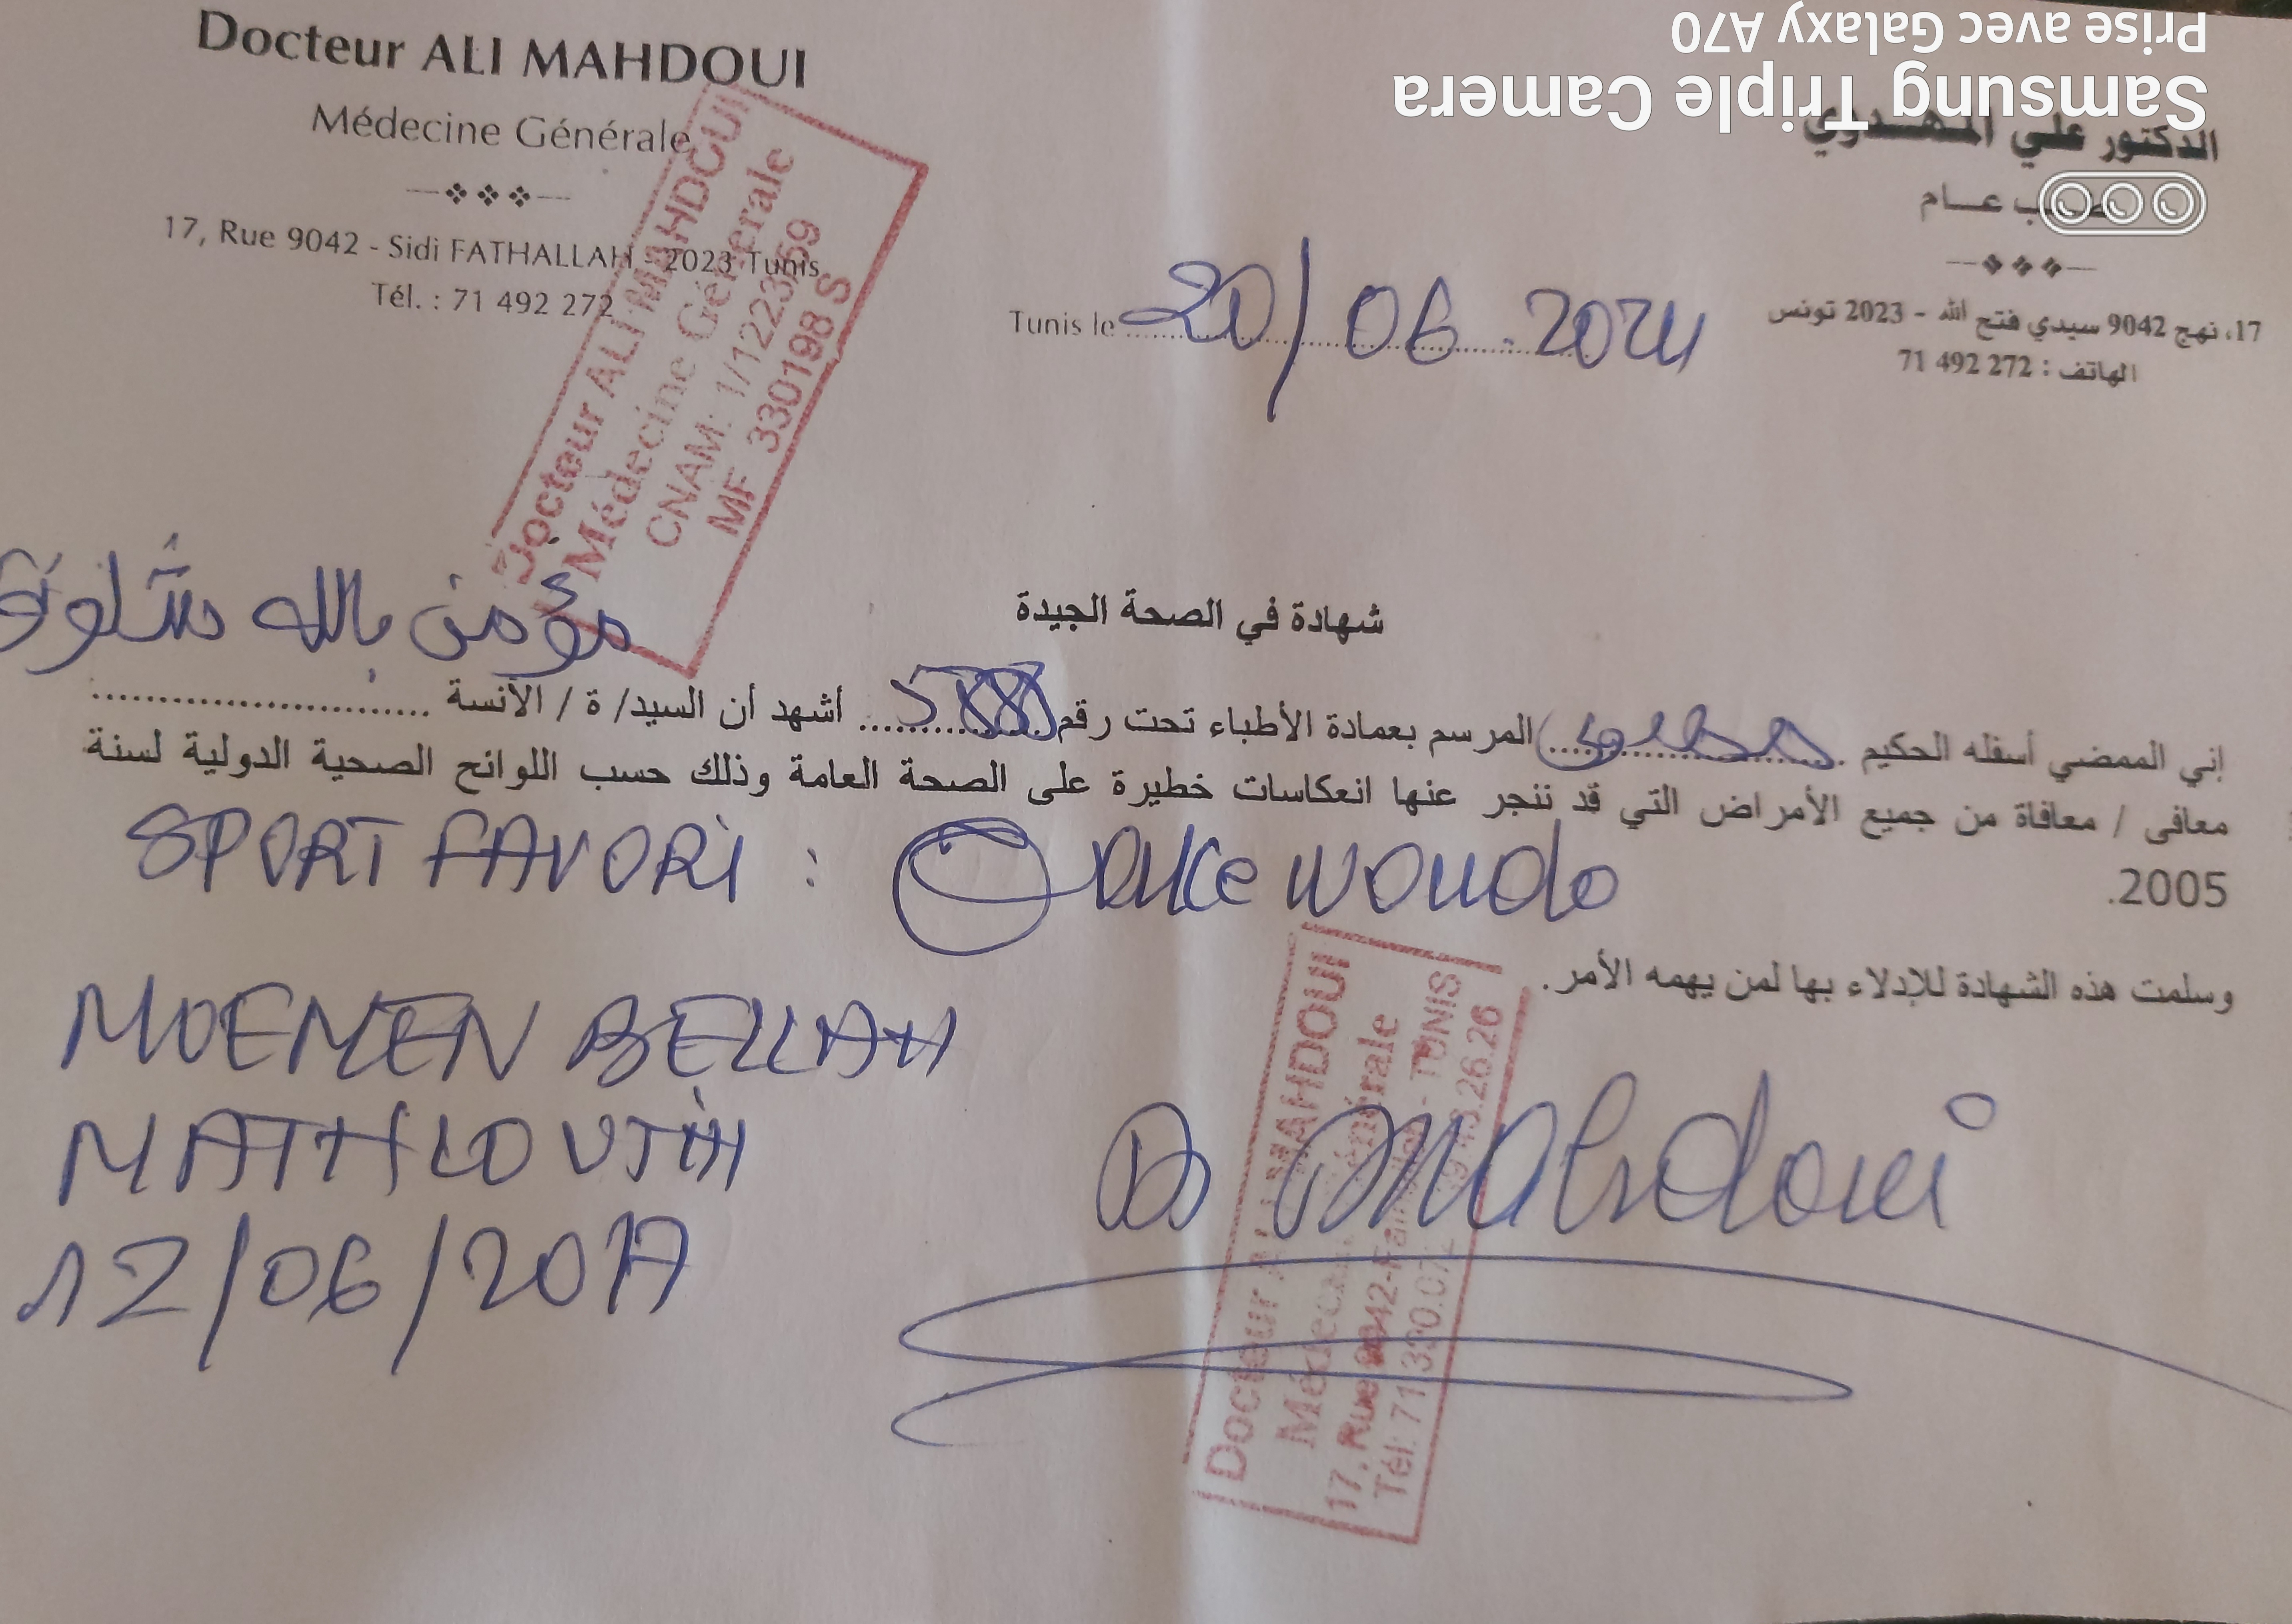 Docteur ALI MAHDOUI
Médecine Générale
17, Rue 9042 - Sidi FATHALLAH - 2023 Tunis
Tél. : 71 492 272
Samsung Triple Camera
Prise avec Galaxy A70
الدكتور علي المهـدوي
طبيب عـام
17، نهج 9042 سيدي فتح الله - 2023 تونس
الهاتف : 272 492 71
Tunis le 20/06.2024
Docteur ALI MAHDOUI
Médecine Générale
CNAM: 1/12223/69
MF 330198 S
شهادة في الصحة الجيدة
مؤمن بالله
إني الممضي أسفله الحكيم المرسم بعمادة الأطباء تحت رقم أشهد أن السيد/ ة / الآنسة
معافى / معافاة من جميع الأمراض التي قد تنجر عنها انعكاسات خطيرة على الصحة العامة وذلك حسب اللوائح الصحية الدولية لسنة
2005.
SPORT FAVORI :
وسلمت هذه الشهادة للإدلاء بها لمن يهمه الأمر.
MOEMEN BELLAH
MATHLOUTHI
12/06/2017
Dr Mahdoui
Docteur ALI MAHDOUI
Médecine Générale
17, Rue 9042- TUNIS
Tél: 71.